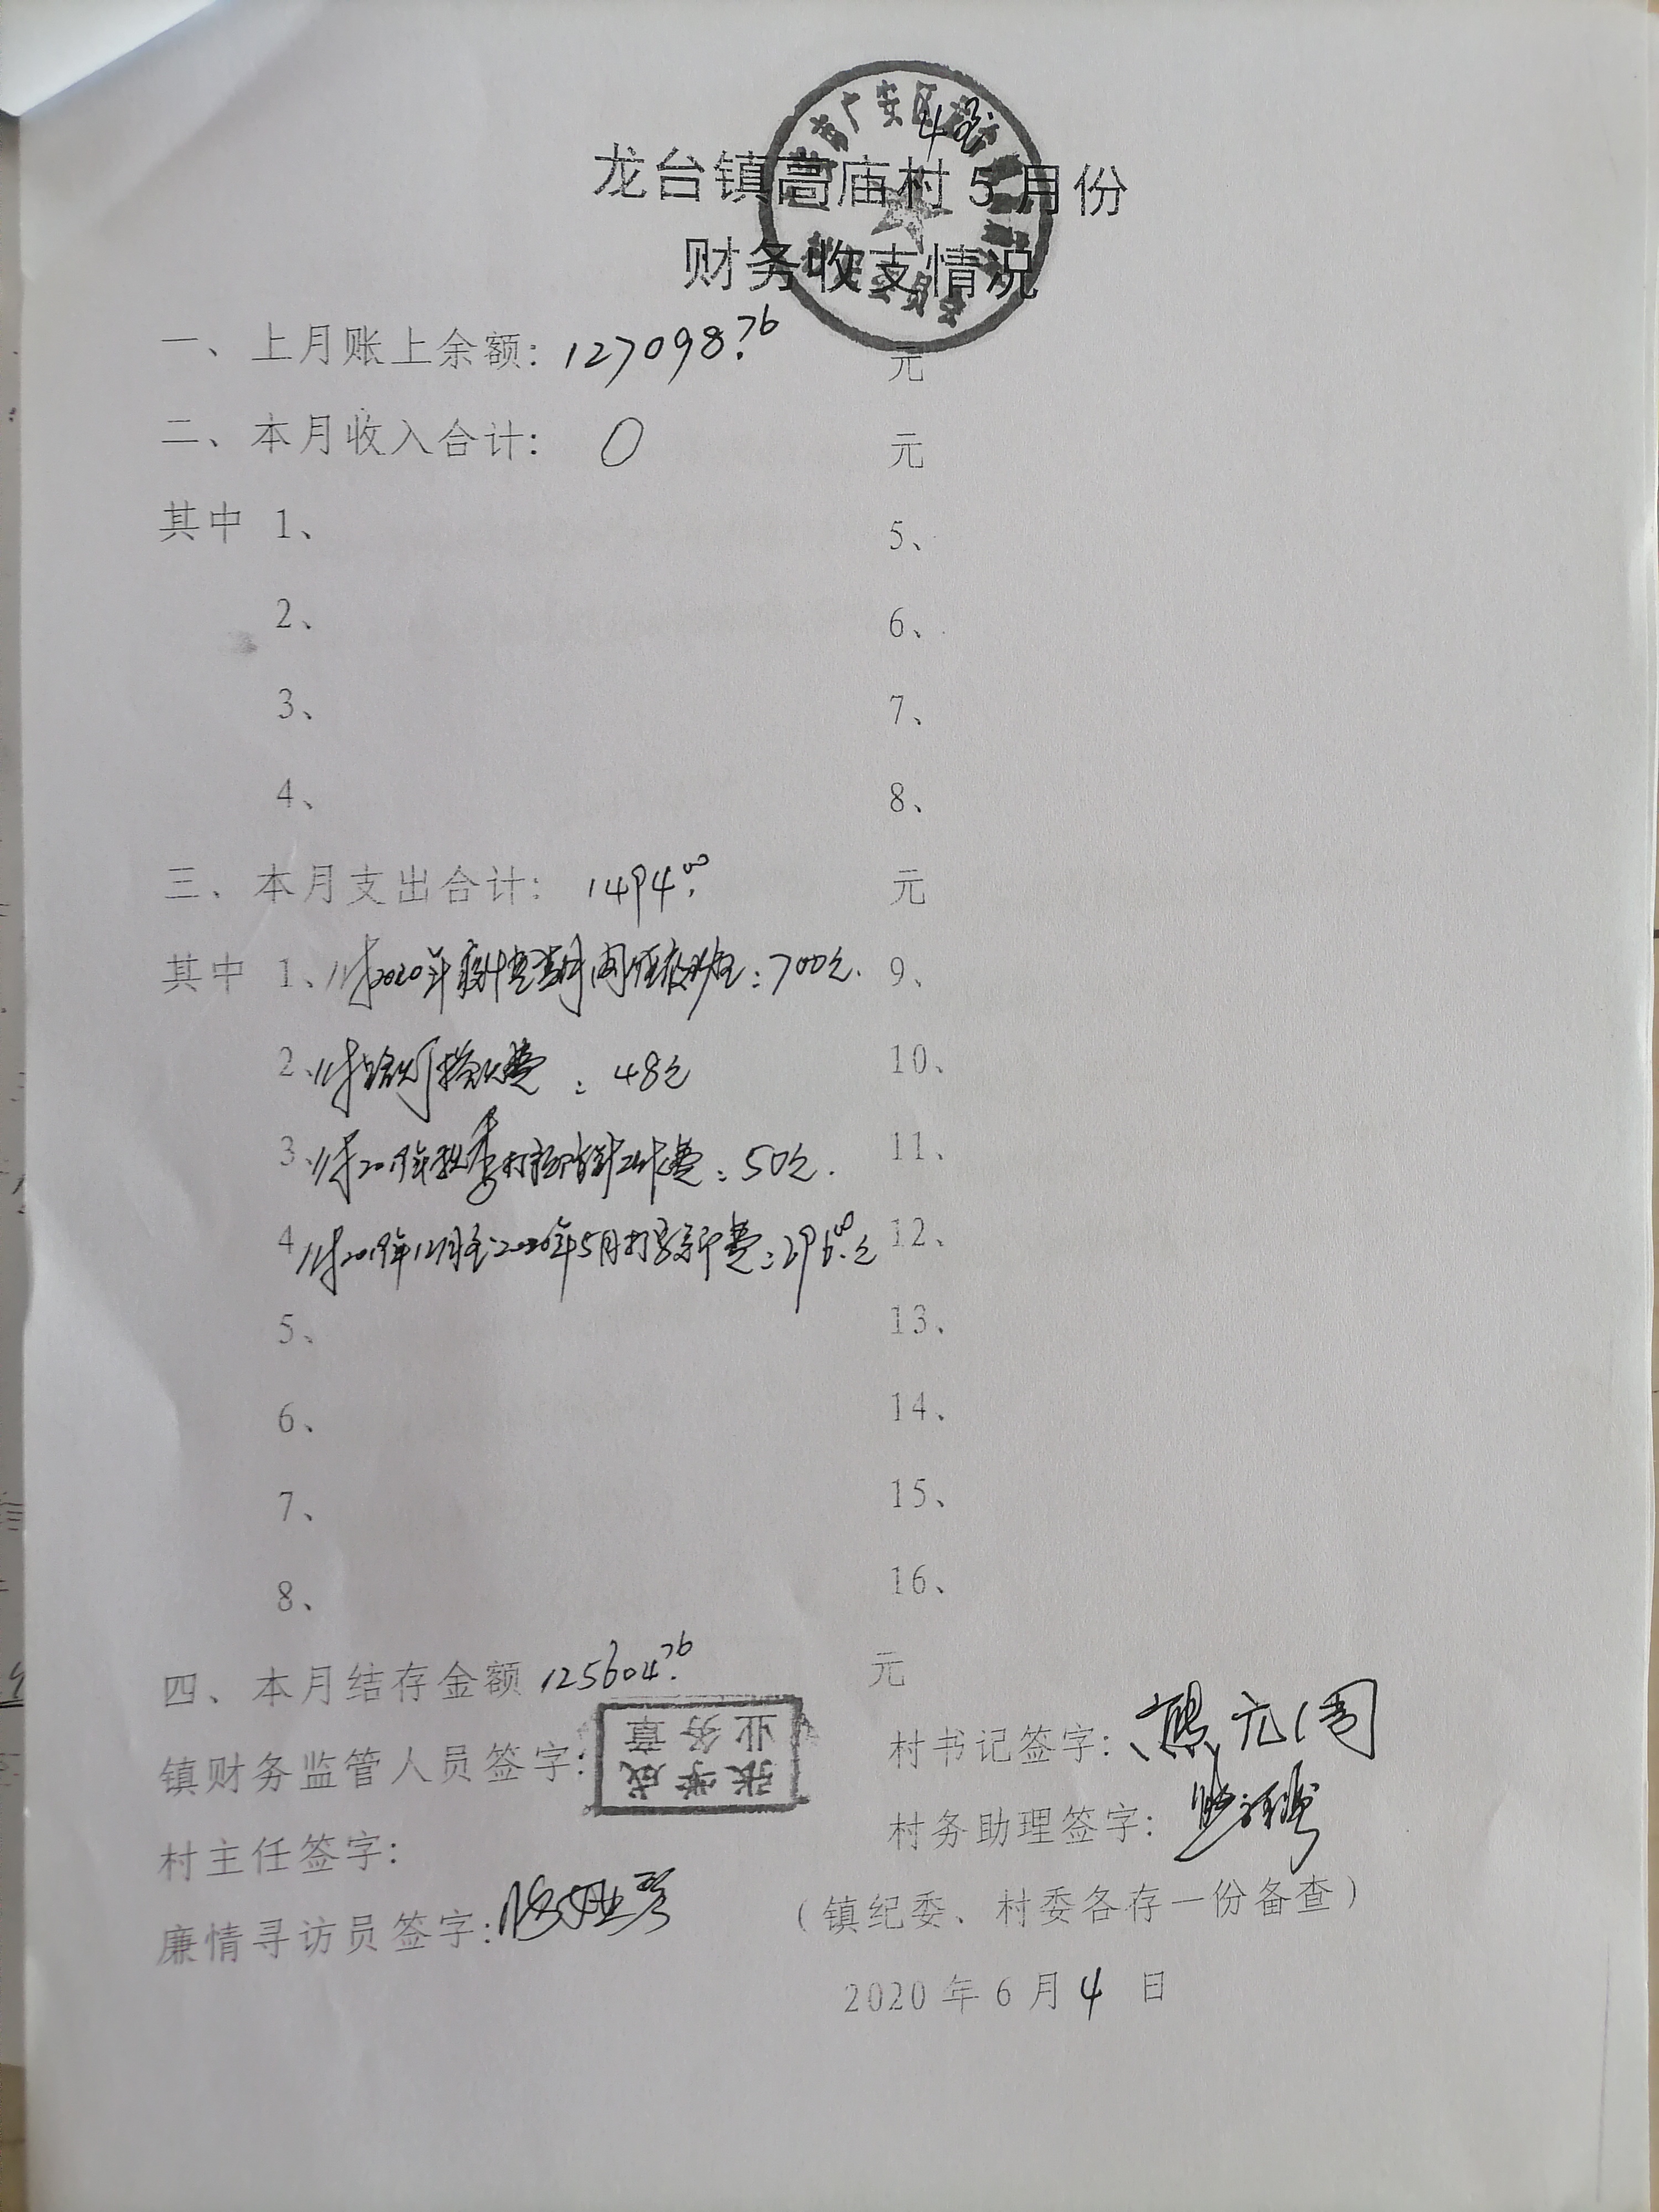 龙台镇高庙村5月份
财务收支情况
一、上月账上余额：127098.76 元
二、本月收入合计： 0 元
其中 1、 5、
2、 6、
3、 7、
4、 8、
三、本月支出合计： 1494.00 元
其中 1、付2020年 期间 ：700元. 9、
2、付 费：48元 10、
3、付2019年 打 费：50元. 11、
4、付2019年12月至2020年5月打字复印费：296.00元 12、
5、 13、
6、 14、
7、 15、
8、 16、
四、本月结存金额 125604.76 元
镇财务监管人员签字： 张学成 业务章 村书记签字：
村主任签字： 村务助理签字：
廉情寻访员签字： （镇纪委、村委各存一份备查）
2020年6月4日